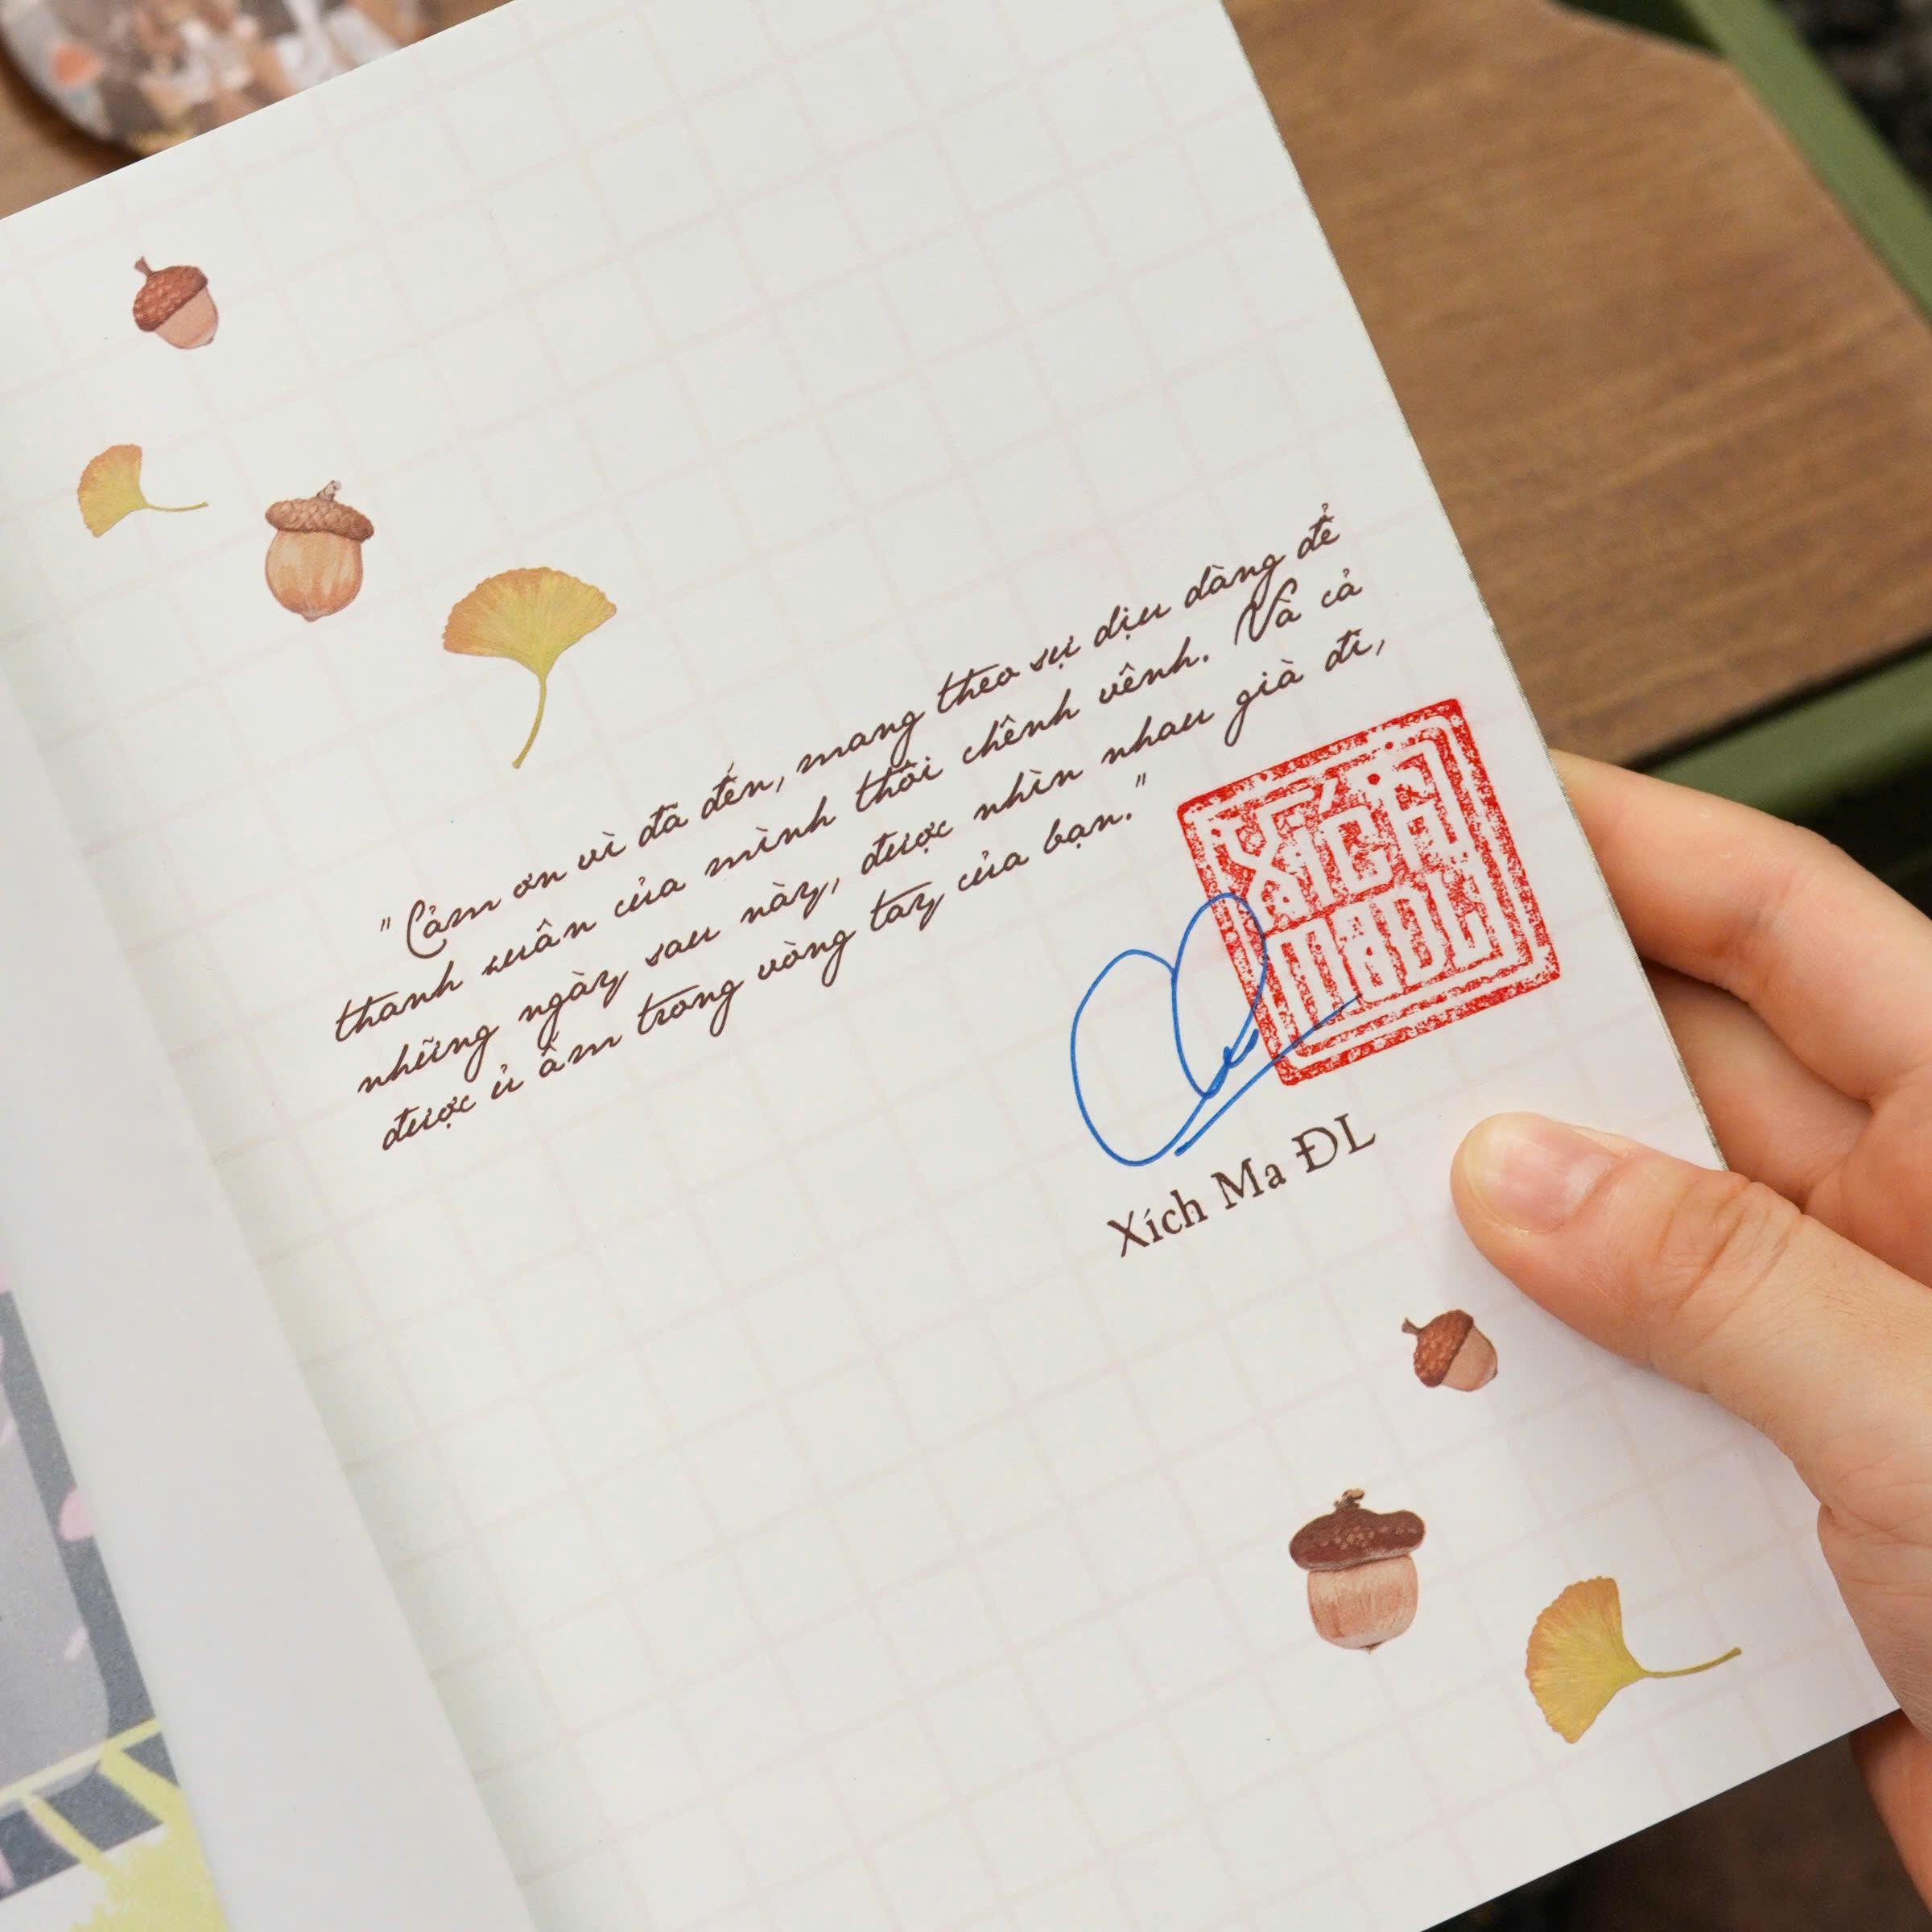 "Cảm ơn vì đã đến, mang theo sự dịu dàng để
thanh xuân của mình thôi chênh vênh. Và cả
những ngày sau này, được nhìn nhau già đi,
được ủ ấm trong vòng tay của bạn."
XÍCH
MAĐL
Xích Ma ĐL